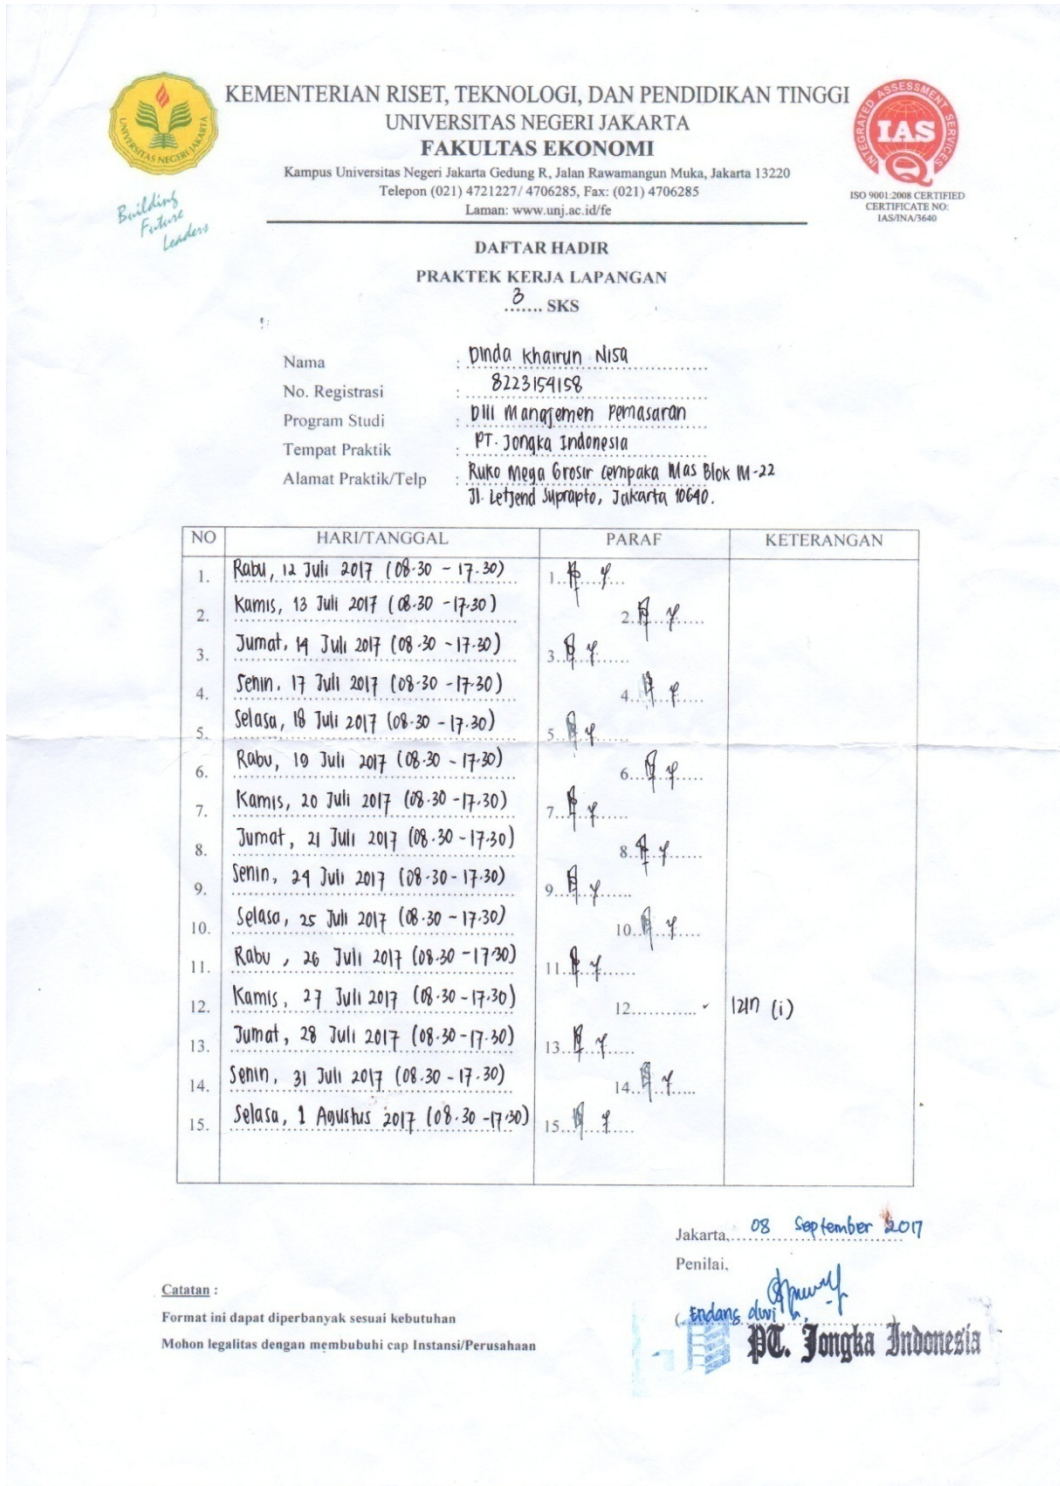 KEMENTERIAN RISET, TEKNOLOGI, DAN PENDIDIKAN TINGGI
UNIVERSITAS NEGERI JAKARTA
FAKULTAS EKONOMI
Kampus Universitas Negeri Jakarta Gedung R, Jalan Rawamangun Muka, Jakarta 13220
Telepon (021) 4721227/ 4706285, Fax: (021) 4706285
Laman: www.unj.ac.id/fe
UNIVERSITAS NEGERI JAKARTA
Building
Future
Leaders
INTEGRATED ASSESSMENT SERVICES
IAS
ISO 9001:2008 CERTIFIED
CERTIFICATE NO:
IAS/INA/3640
DAFTAR HADIR
PRAKTEK KERJA LAPANGAN
3 SKS
Nama : Dinda Khairun Nisa
No. Registrasi : 8223154158
Program Studi : DIII Manajemen Pemasaran
Tempat Praktik : PT. Jongka Indonesia
Alamat Praktik/Telp : Ruko Mega Grosir Cempaka Mas Blok IM-22
Jl. Letjend Suprapto, Jakarta 10640.
NO HARI/TANGGAL PARAF KETERANGAN
1. Rabu, 12 Juli 2017 (08.30 - 17.30) 1.
2. Kamis, 13 Juli 2017 (08.30 - 17.30) 2.
3. Jumat, 14 Juli 2017 (08.30 - 17.30) 3.
4. Senin, 17 Juli 2017 (08.30 - 17.30) 4.
5. Selasa, 18 Juli 2017 (08.30 - 17.30) 5.
6. Rabu, 19 Juli 2017 (08.30 - 17.30) 6.
7. Kamis, 20 Juli 2017 (08.30 - 17.30) 7.
8. Jumat, 21 Juli 2017 (08.30 - 17.30) 8.
9. Senin, 24 Juli 2017 (08.30 - 17.30) 9.
10. Selasa, 25 Juli 2017 (08.30 - 17.30) 10.
11. Rabu, 26 Juli 2017 (08.30 - 17.30) 11.
12. Kamis, 27 Juli 2017 (08.30 - 17.30) 12. - Izin (i)
13. Jumat, 28 Juli 2017 (08.30 - 17.30) 13.
14. Senin, 31 Juli 2017 (08.30 - 17.30) 14.
15. Selasa, 1 Agustus 2017 (08.30 - 17.30) 15.
Jakarta, 08 September 2017
Penilai,
( Endang dwi
PT. Jongka Indonesia
Catatan :
Format ini dapat diperbanyak sesuai kebutuhan
Mohon legalitas dengan membubuhi cap Instansi/Perusahaan